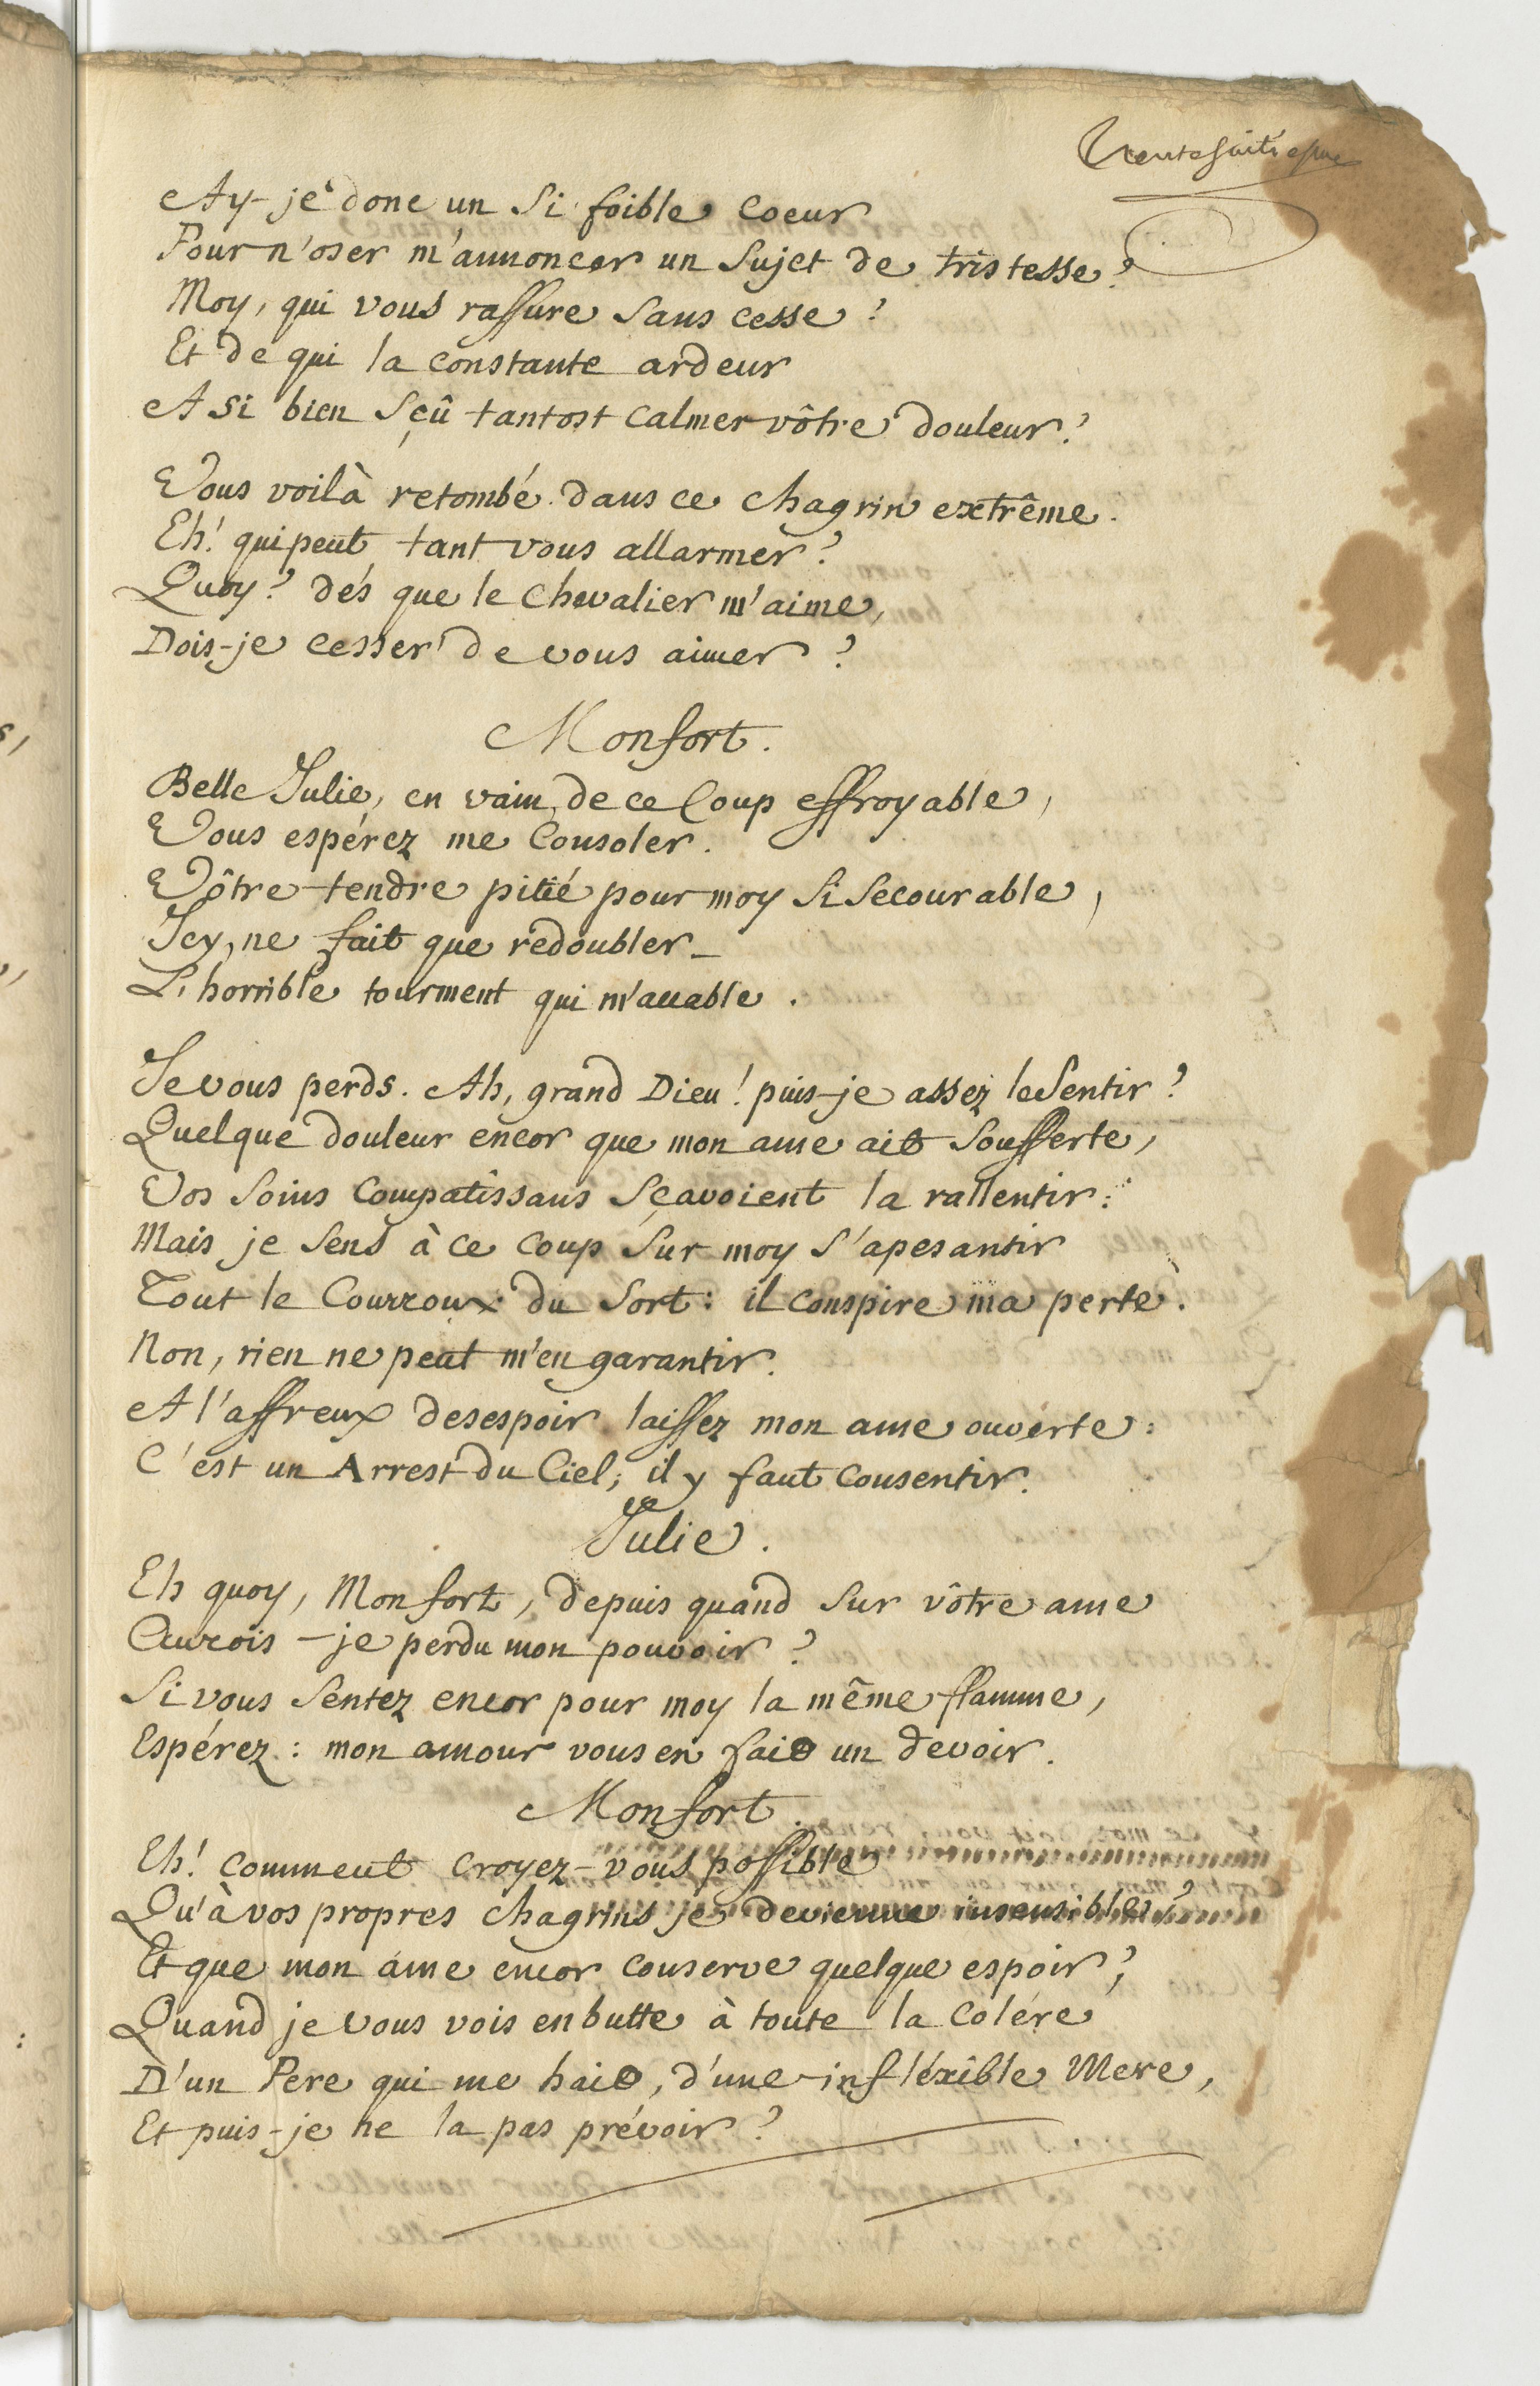 Trente huitiesme
Ay-je donc un si foible coeur
Pour n'oser m'annoncer un sujet de tristesse?
Moy, qui vous rassure sans cesse?
Et de qui la constante ardeur
A si bien sçû tantost calmer vôtre douleur?
Vous voilà retombé dans ce chagrin extrême.
Eh! qui peut tant vous allarmer?
Quoy? dés que le Chevalier m'aime,
Dois-je cesser de vous aimer?
Monfort.
Belle Julie, en vain de ce Coup effroyable,
Vous espérez me Consoler.
Vôtre tendre pitié pour moy si secourable,
Icy, ne fait que redoubler
L'horrible tourment qui m'accable.
Je vous perds. Ah, grand Dieu! puis-je assez le sentir?
Quelque douleur encor que mon ame ait soufferte,
Vos soins compatissans sçavoient la rallentir:
Mais je sens à ce coup sur moy s'apesantir
Tout le Courroux du sort: il conspire ma perte.
Non, rien ne peut m'en garantir.
A l'affreux desespoir laissez mon ame ouverte:
C'est un Arrest du Ciel; il y faut consentir.
Julie.
Eh quoy, Monfort, depuis quand sur vôtre ame
Aurois-je perdu mon pouvoir?
Si vous sentez encor pour moy la même flamme,
Espérez: mon amour vous en fait un devoir.
Monfort.
Eh! comment croyez-vous possible
Qu'à vos propres chagrins je devienne insensible?
Et que mon ame encor conserve quelque espoir,
Quand je vous vois en butte à toute la colére
D'un Pere qui me hait, d'une infléxible Mere,
Et puis-je ne la pas prévoir?